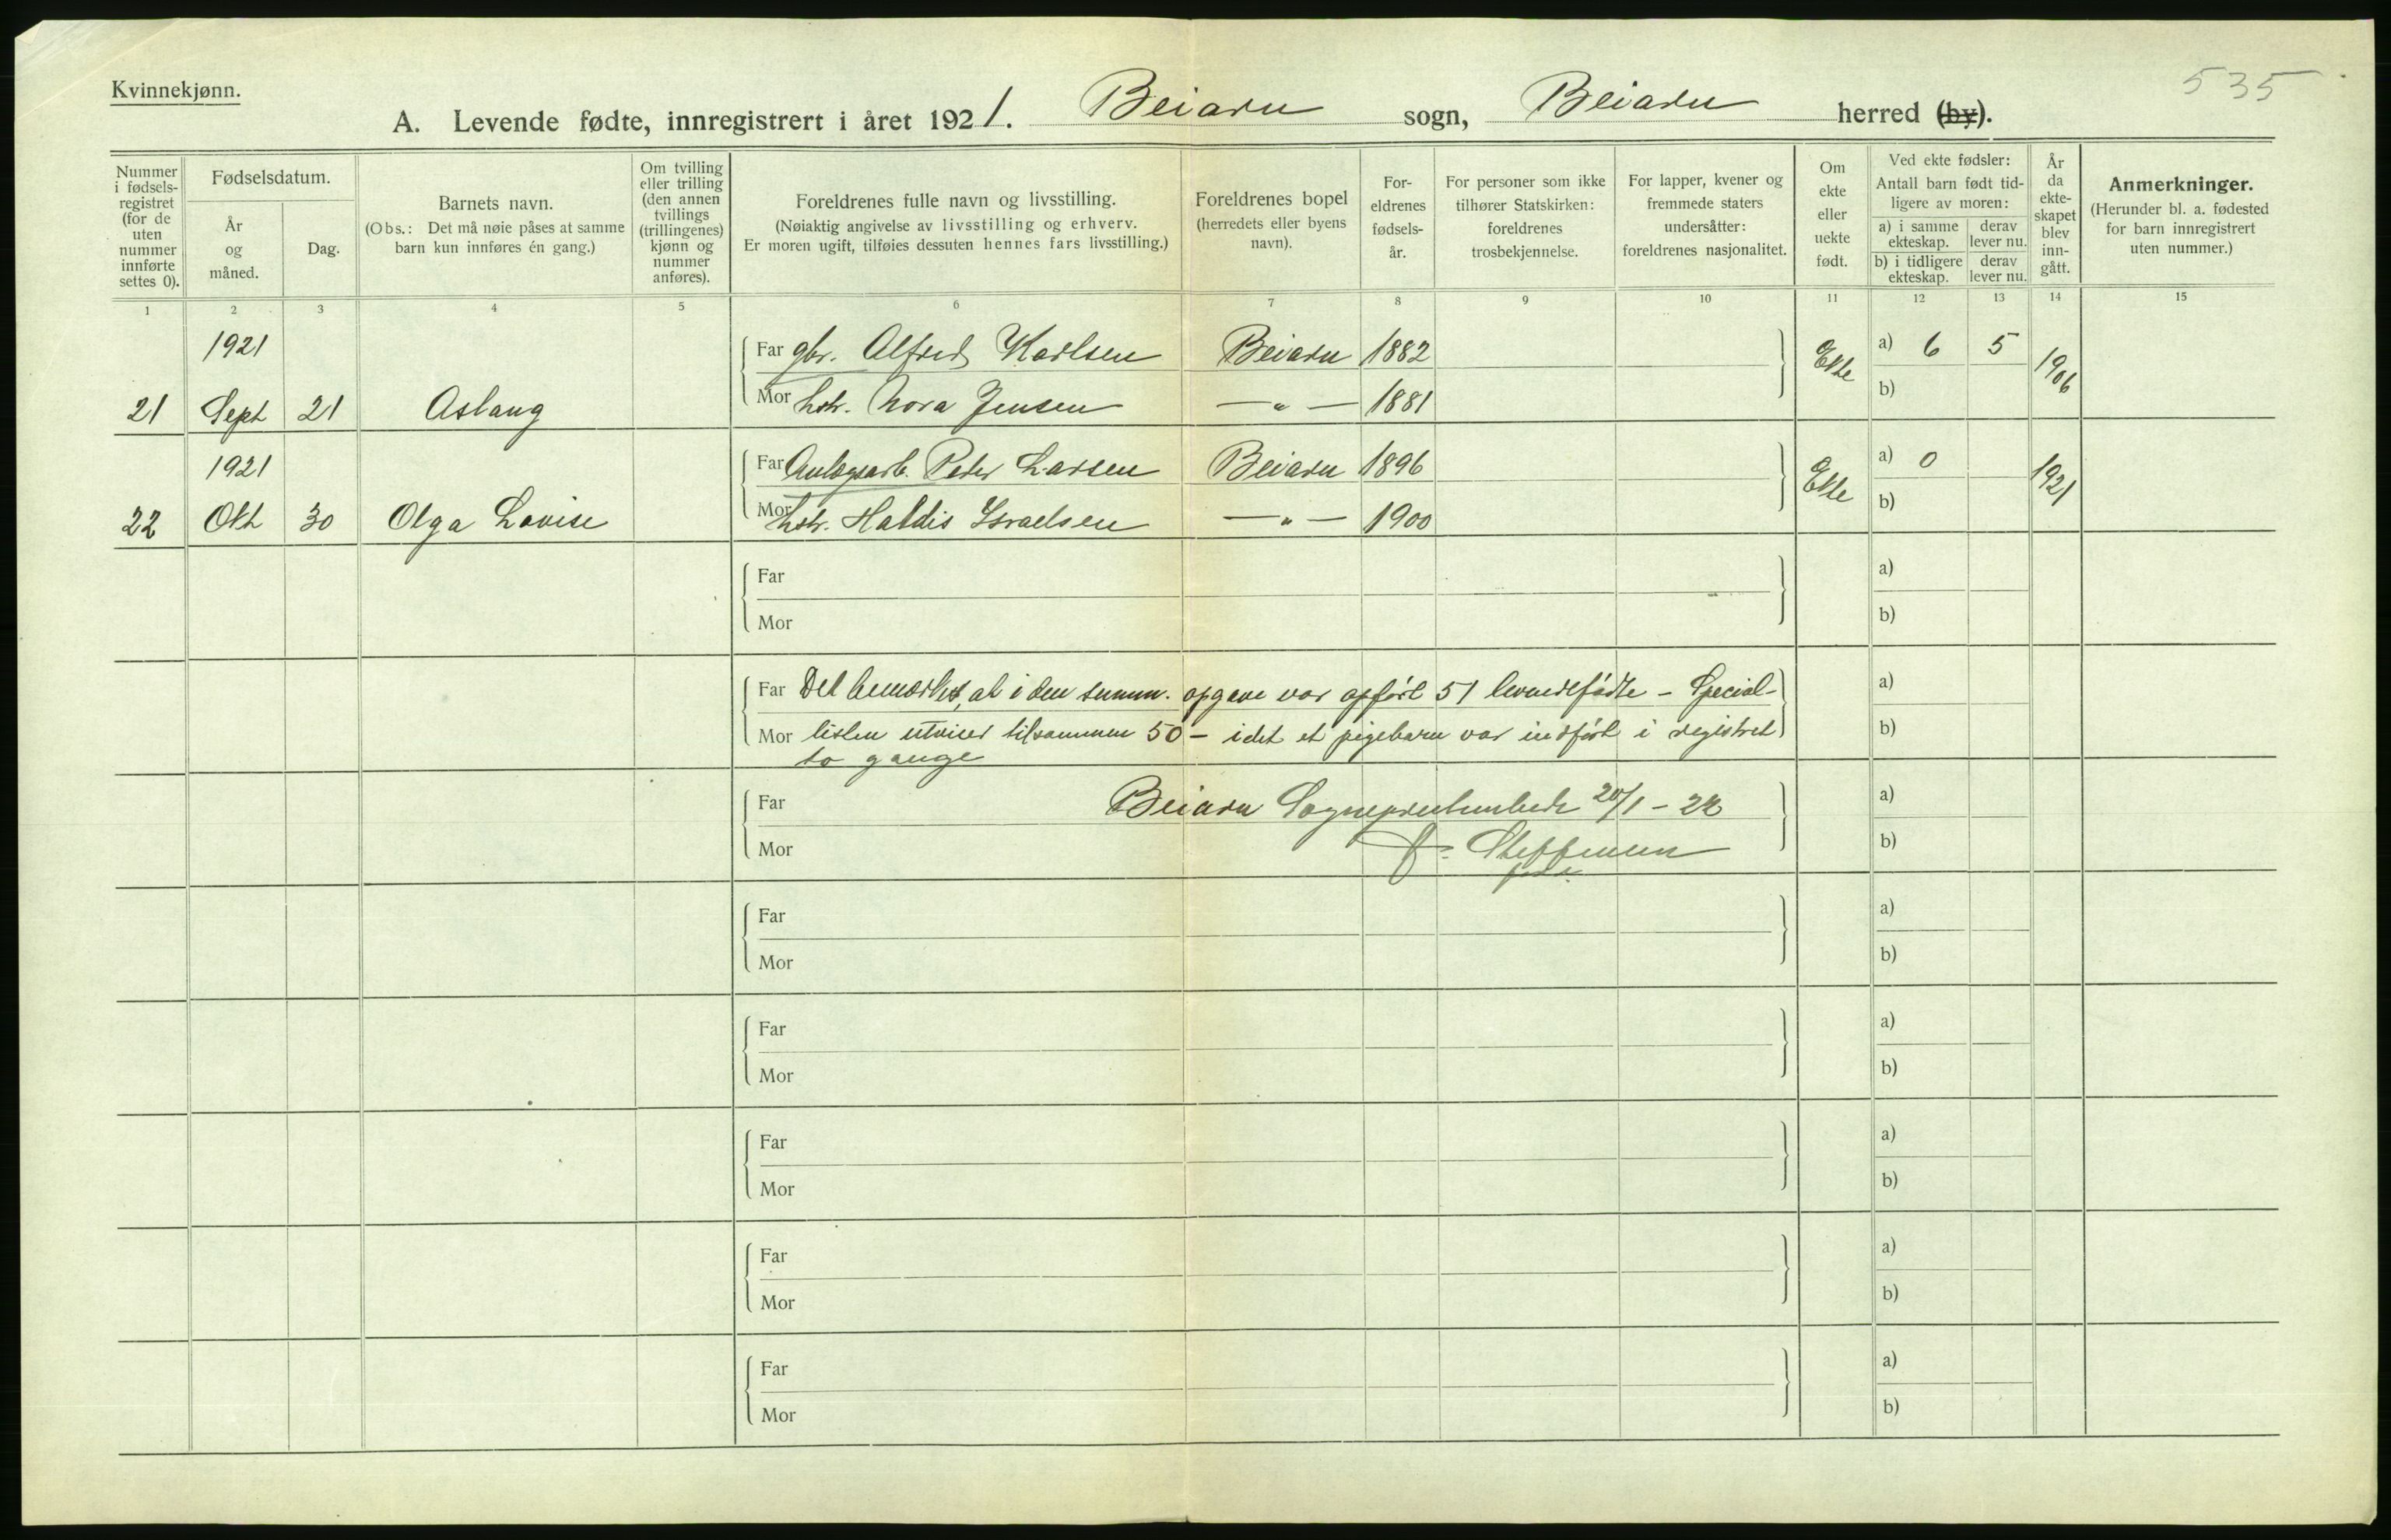 Kvinnekjønn.
535
A. Levende fødte, innregistrert i året 1921. Beiarn sogn, Beiarn herred (by).
Nummer i fødsels-registret (for de uten nummer innførte settes 0).
Fødselsdatum.
År og måned.
Dag.
Barnets navn.
(Obs.: Det må nøie påses at samme barn kun innføres én gang.)
Om tvilling eller trilling (den annen tvillings (trillingenes) kjønn og nummer anføres).
Foreldrenes fulle navn og livsstilling.
(Nøiaktig angivelse av livsstilling og erhverv.
Er moren ugift, tilføies dessuten hennes fars livsstilling.)
Foreldrenes bopel
(herredets eller byens navn).
For-eldrenes fødsels-år.
For personer som ikke tilhører Statskirken: foreldrenes trosbekjennelse.
For lapper, kvener og fremmede staters undersåtter: foreldrenes nasjonalitet.
Om ekte eller uekte født.
Ved ekte fødsler:
Antall barn født tid-ligere av moren:
a) i samme ekteskap.
derav lever nu.
b) i tidligere ekteskap.
derav lever nu.
År da ekte-skapet blev inn-gått.
Anmerkninger.
(Herunder bl. a. fødested for barn innregistrert uten nummer.)
1 2 3 4 5 6 7 8 9 10 11 12 13 14 15
1921 Far gbr. Alfred Karlsen Beiarn 1882 Ekte a) 6 5 1906
21 Sept 21 Aslaug Mor hstr. Nora Jensen — " — 1881 b)
1921 Far Anlægsarb. Peder Larsen Beiarn 1896 Ekte a) 0 1921
22 Okt 30 Olga Lovise Mor hstr. Haldis Israelsen — " — 1900 b)
Far a)
Mor b)
Far Det bemærkes, at i den summ. opgave var opført 51 levendefødte - Special- a)
Mor listen utviser tilsammen 50 - idet et pigebarn var indført i registret b)
to gange
Far Beiarn Sogneprestembede 20/1 - 22 a)
Mor Steffensen b)
Far a)
Mor b)
Far a)
Mor b)
Far a)
Mor b)
Far a)
Mor b)
Far a)
Mor b)